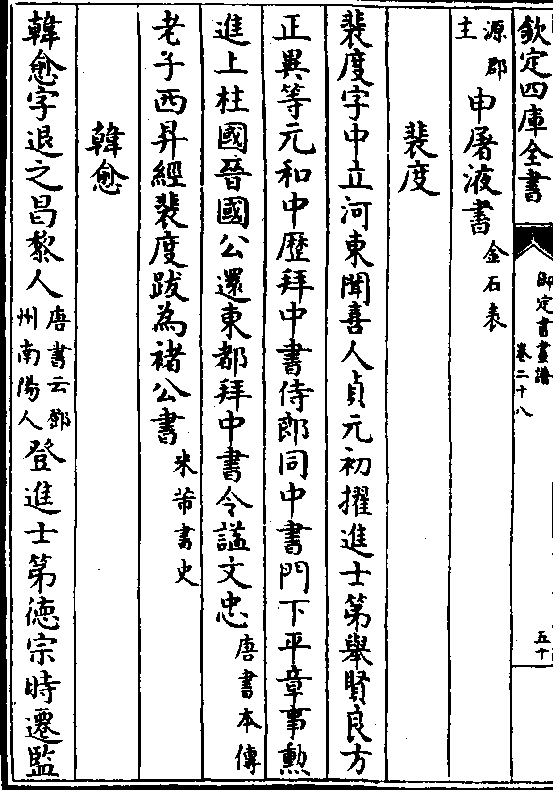 欽定四庫全書
御定書畫譜
卷二十八
五十
源郡主申屠液書金石表
裴度
裴度字中立河東聞喜人貞元初擢進士第舉賢良方
正異等元和中歷拜中書侍郎同中書門下平章事勲
進上柱國晉國公還東都拜中書令諡文忠唐書本傳
老子西昇經裴度跋為褚公書米芾書史
韓愈
韓愈字退之昌黎人唐書云鄧州南陽人登進士第徳宗時遷監